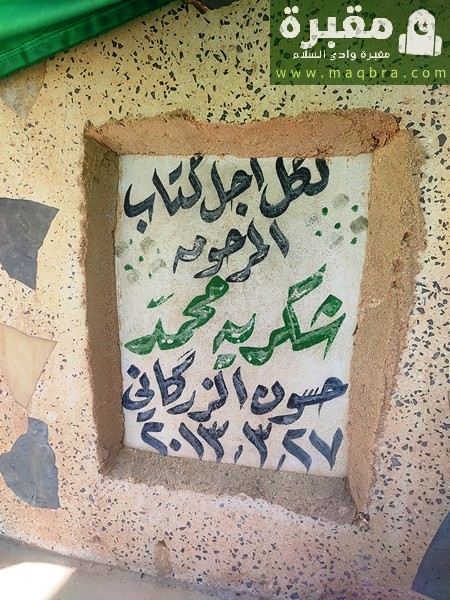 مقبرة
مقبرة وادي السلام
www.maqbra.com
لكل اجل كتاب
المرحومه
شكريه محمد
حسون الزرگاني
٢٠١٣،٣،٢٧